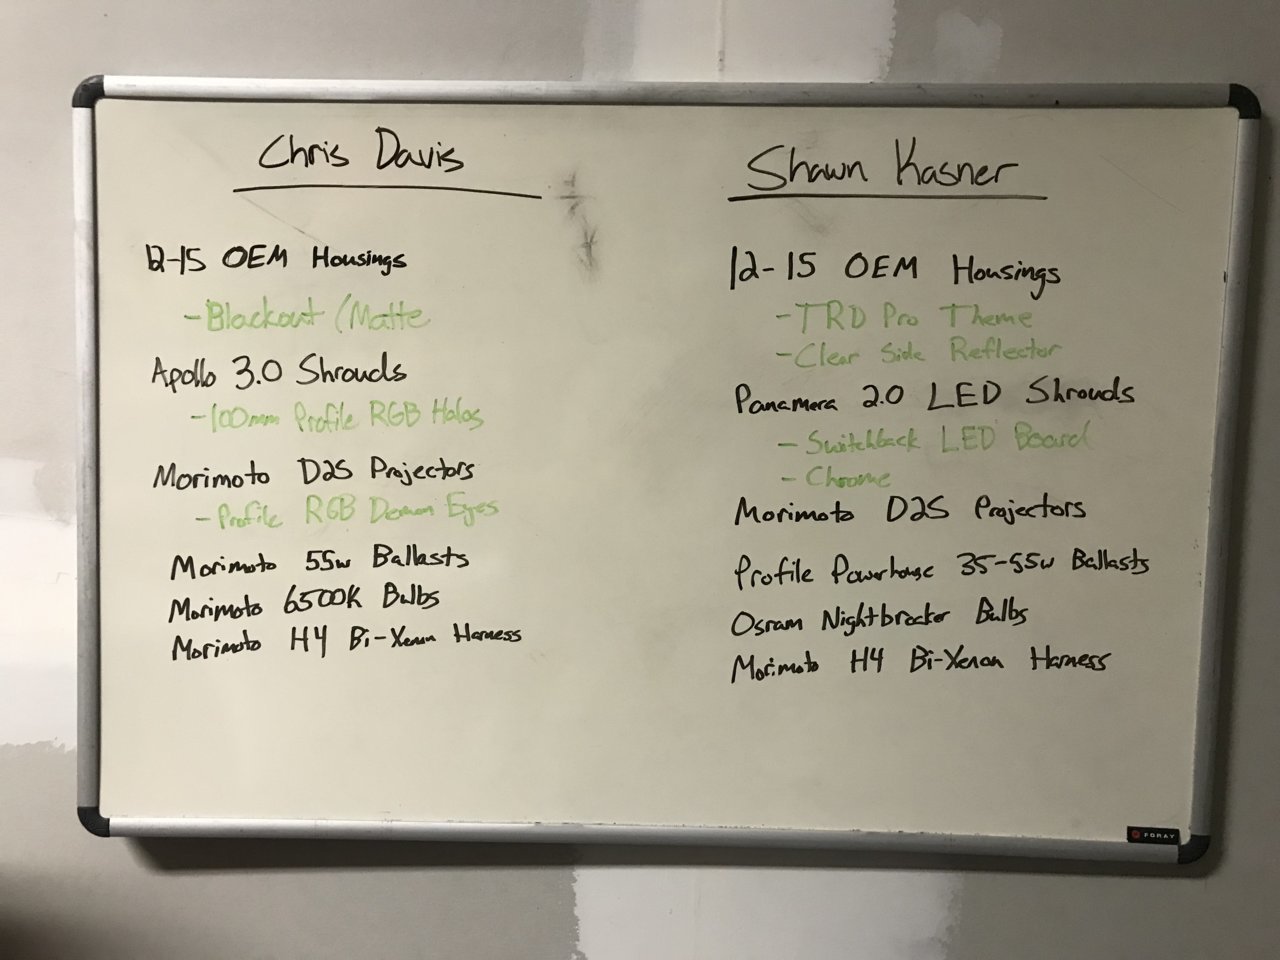 Chris Davis
12-15 OEM Housings
-Blackout (Matte
Apollo 3.0 Shrouds
-100mm Profile RGB Halos
Morimoto D2S Projectors
-Profile RGB Demon Eyes
Morimoto 55w Ballasts
Morimoto 6500K Bulbs
Morimoto H4 Bi-Xenon Harness
Shawn Kasner
12-15 OEM Housings
-TRD Pro Theme
-Clear Side Reflector
Panamera 2.0 LED Shrouds
-Switchback LED Board
-Chrome
Morimoto D2S Projectors
Profile Powerhouse 35-55w Ballasts
Osram Nightbreaker Bulbs
Morimoto H4 Bi-Xenon Harness
FORAY